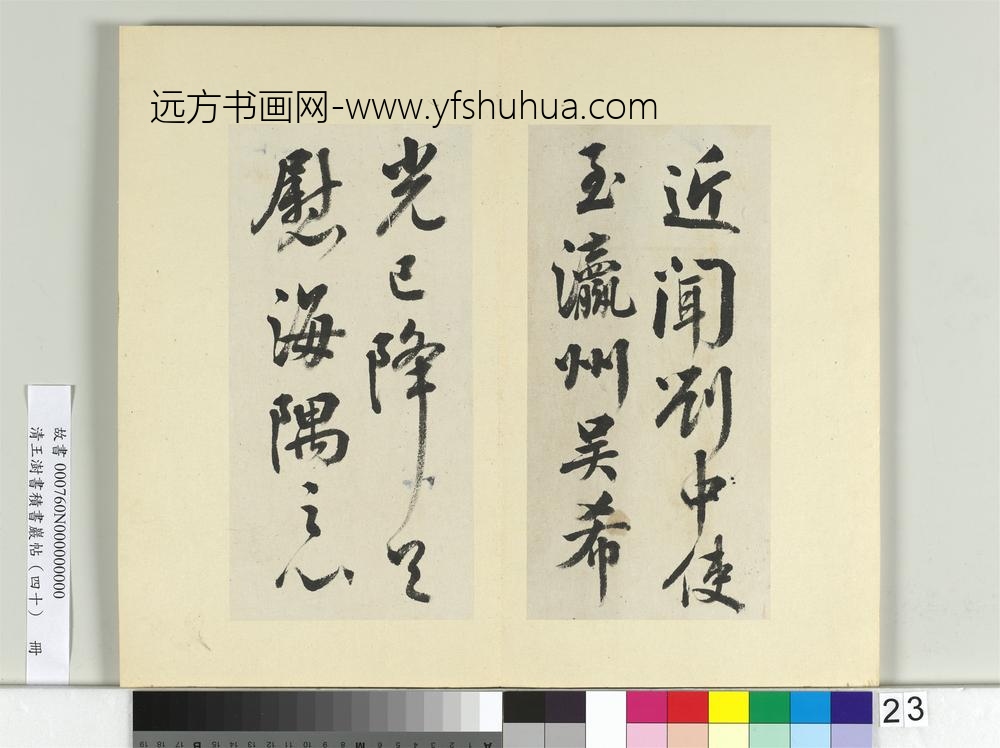 远方书画网-www.yfshuhua.com
近闻刘中使
至瀛州吴希
光已降足
慰海隅之心
故書 000760N000000000
清王澍書積書巖帖（四十） 冊
23